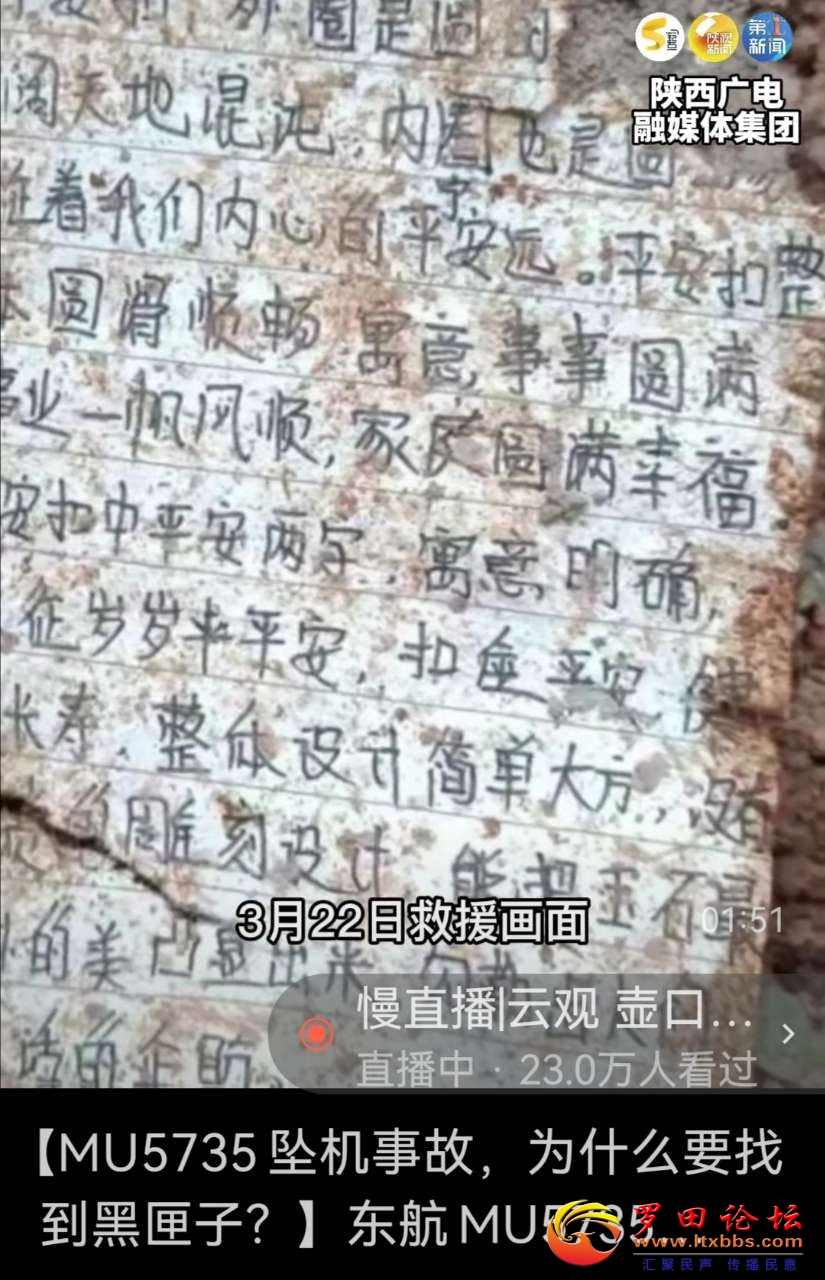 外圈是圆
第1
新闻
陕视
新闻
陕西广电
融媒体集团
阔天地混沌 内圈也是圆
征着我们内心的平安宁远。平安扣整
体圆滑顺畅 寓意,事事圆满,
事业一帆风顺,家庭圆满幸福
安扣中平安两字,寓意,明确,
征岁岁平平安,扣座平安 使
长寿、整体设计简单大方,没有
雕刻设计 能把玉石
的美凸显出来
3月22日救援画面
01:51
的企盼。
慢直播|云观 壶口...
直播中 · 23.0万人看过
【MU5735坠机事故，为什么要找
到黑匣子？】东航MU5735...
罗田论坛
www.ltxbbs.com
汇聚民声 传播民意